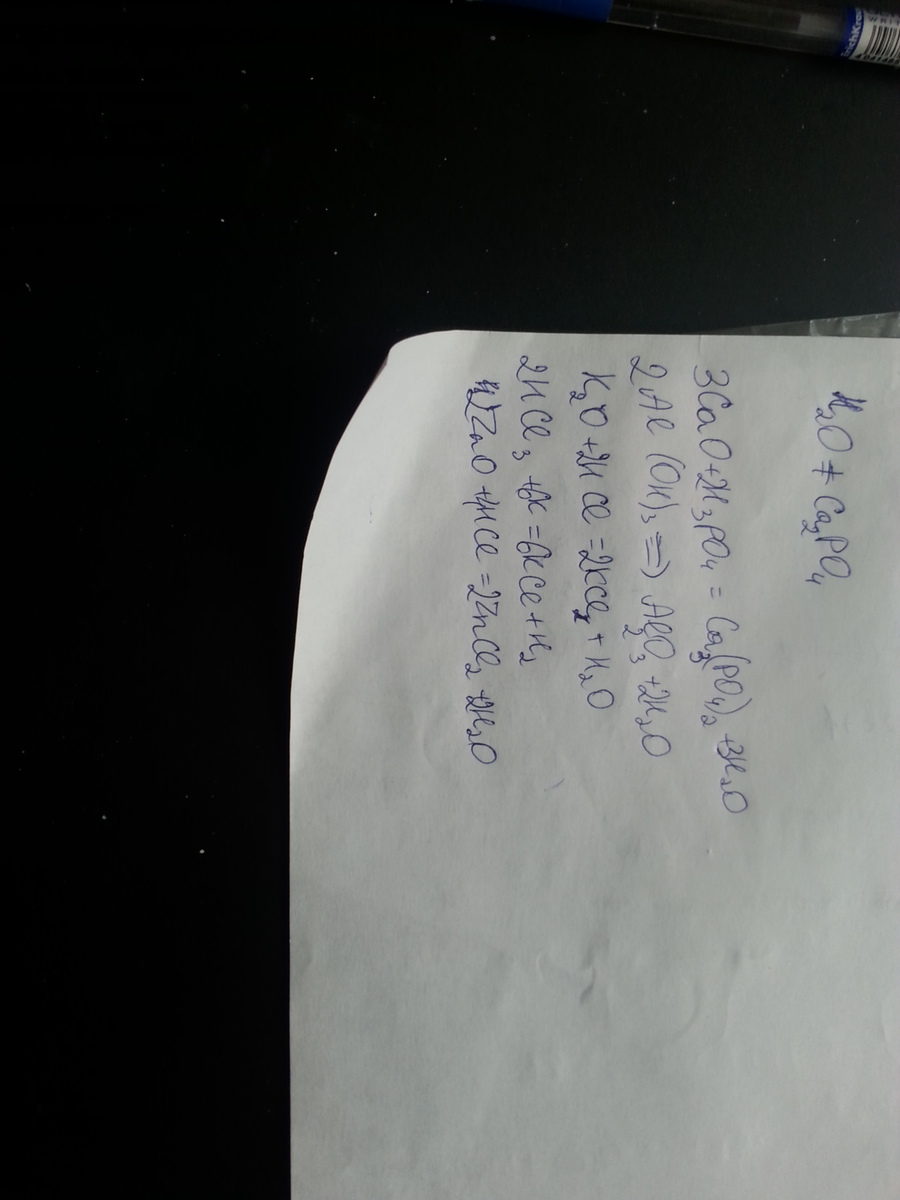 H₂O + Ca₂PO₄
3CaO+2H₃PO₄ = Ca₃(PO₄)₂ +3H₂O
2Al (OH)₃ => Al₂O₃ +2H₂O
K₂O +2HCl =2KCl + H₂O
2HCl₃ +6K =6KCl + H₂
2ZnO +4HCl =2ZnCl₂ +2H₂O
ErichKrause